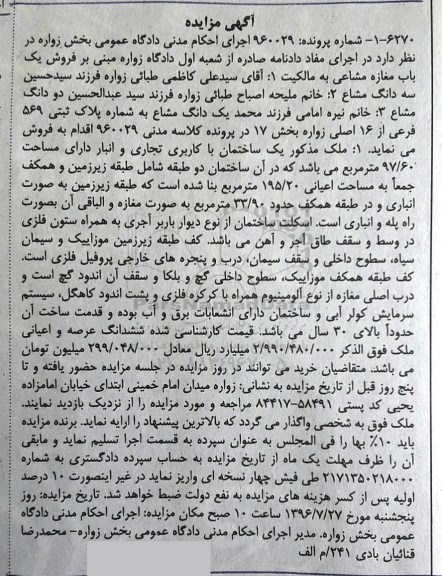 آگهی مزایده
۶۲۷۰-۱- شماره پرونده: ۹۶۰۰۲۹ اجرای احکام مدنی دادگاه عمومی بخش زواره در
نظر دارد در اجرای مفاد دادنامه صادره از شعبه اول دادگاه زواره مبنی بر فروش یک
باب مغازه مشاعی به مالکیت ۱: آقای سیدعلی کاظمی طبائی زواره فرزند سیدحسین
سه دانگ مشاع ۲: خانم ملیحه اصباح طبائی زواره فرزند سید عبدالحسین دو دانگ
مشاع ۳: خانم نیره امامی فرزند محمد یک دانگ مشاع به شماره پلاک ثبتی ۵۶۹
فرعی از ۱۶ اصلی زواره بخش ۱۷ در پرونده کلاسه مدنی ۹۶۰۰۲۹ اقدام به فروش
می نماید. ۱: ملک مذکور یک ساختمان با کاربری تجاری و انبار دارای مساحت
۹۷/۶۰ مترمربع می باشد که در آن ساختمان دو طبقه شامل طبقه زیرزمین و همکف
جمعاً به مساحت اعیانی ۱۹۵/۲۰ مترمربع بنا شده است که طبقه زیرزمین به صورت
انباری و در طبقه همکف حدود ۳۳/۹۰ مترمربع به صورت مغازه و الباقی آن بصورت
راه پله و انباری است. اسکلت ساختمان از نوع دیوار باربر آجری به همراه ستون فلزی
در وسط و سقف طاق آجر و آهن می باشد. کف طبقه زیرزمین موزاییک و سیمان
سیاه، سطوح داخلی و سقف سیمان، درب و پنجره های خارجی پروفیل فلزی است.
کف طبقه همکف موزاییک، سطوح داخلی گچ و بلکا و سقف آن اندود گچ است و
درب اصلی مغازه از نوع آلومینیوم همراه با کرکره فلزی و پشت اندود کاهگل، سیستم
سرمایش کولر آبی و ساختمان دارای انشعابات برق و آب بوده و قدمت ساخت آن
حدوداً بالای ۳۰ سال می باشد. قیمت کارشناسی شده ششدانگ عرصه و اعیانی
ملک فوق الذکر ۲/۹۹۰/۴۸۰/۰۰۰ میلیارد ریال معادل ۲۹۹/۰۴۸/۰۰۰ میلیون تومان
می باشد. متقاضیان خرید می توانند در روز مزایده در جلسه مزایده حضور یافته و تا
پنج روز قبل از تاریخ مزایده به نشانی: زواره میدان امام خمینی ابتدای خیابان امامزاده
یحیی کد پستی ۵۸۴۹۱-۸۴۴۱۷ مراجعه و مورد مزایده را از نزدیک بازدید نمایند.
ملک فوق به شخصی واگذار می گردد که بالاترین پیشنهاد را ارائه نماید. برنده مزایده
باید ۱۰٪ بها را فی المجلس به عنوان سپرده به قسمت اجرا تسلیم نماید و مابقی
آن را ظرف مهلت یک ماه از تاریخ مزایده به حساب سپرده دادگستری به شماره
۲۱۷۱۳۵۰۲۱۸۰۰۰ طی فیش چهار نسخه ای واریز نماید در غیر اینصورت ۱۰ درصد
اولیه پس از کسر هزینه های مزایده به نفع دولت ضبط خواهد شد. تاریخ مزایده: روز
پنجشنبه مورخ ۱۳۹۶/۷/۲۷ ساعت ۱۰ صبح مکان مزایده: اجرای احکام مدنی دادگاه
عمومی بخش زواره. مدیر اجرای احکام مدنی دادگاه عمومی بخش زواره- محمدرضا
قنائیان بادی ۲۴۱/م الف